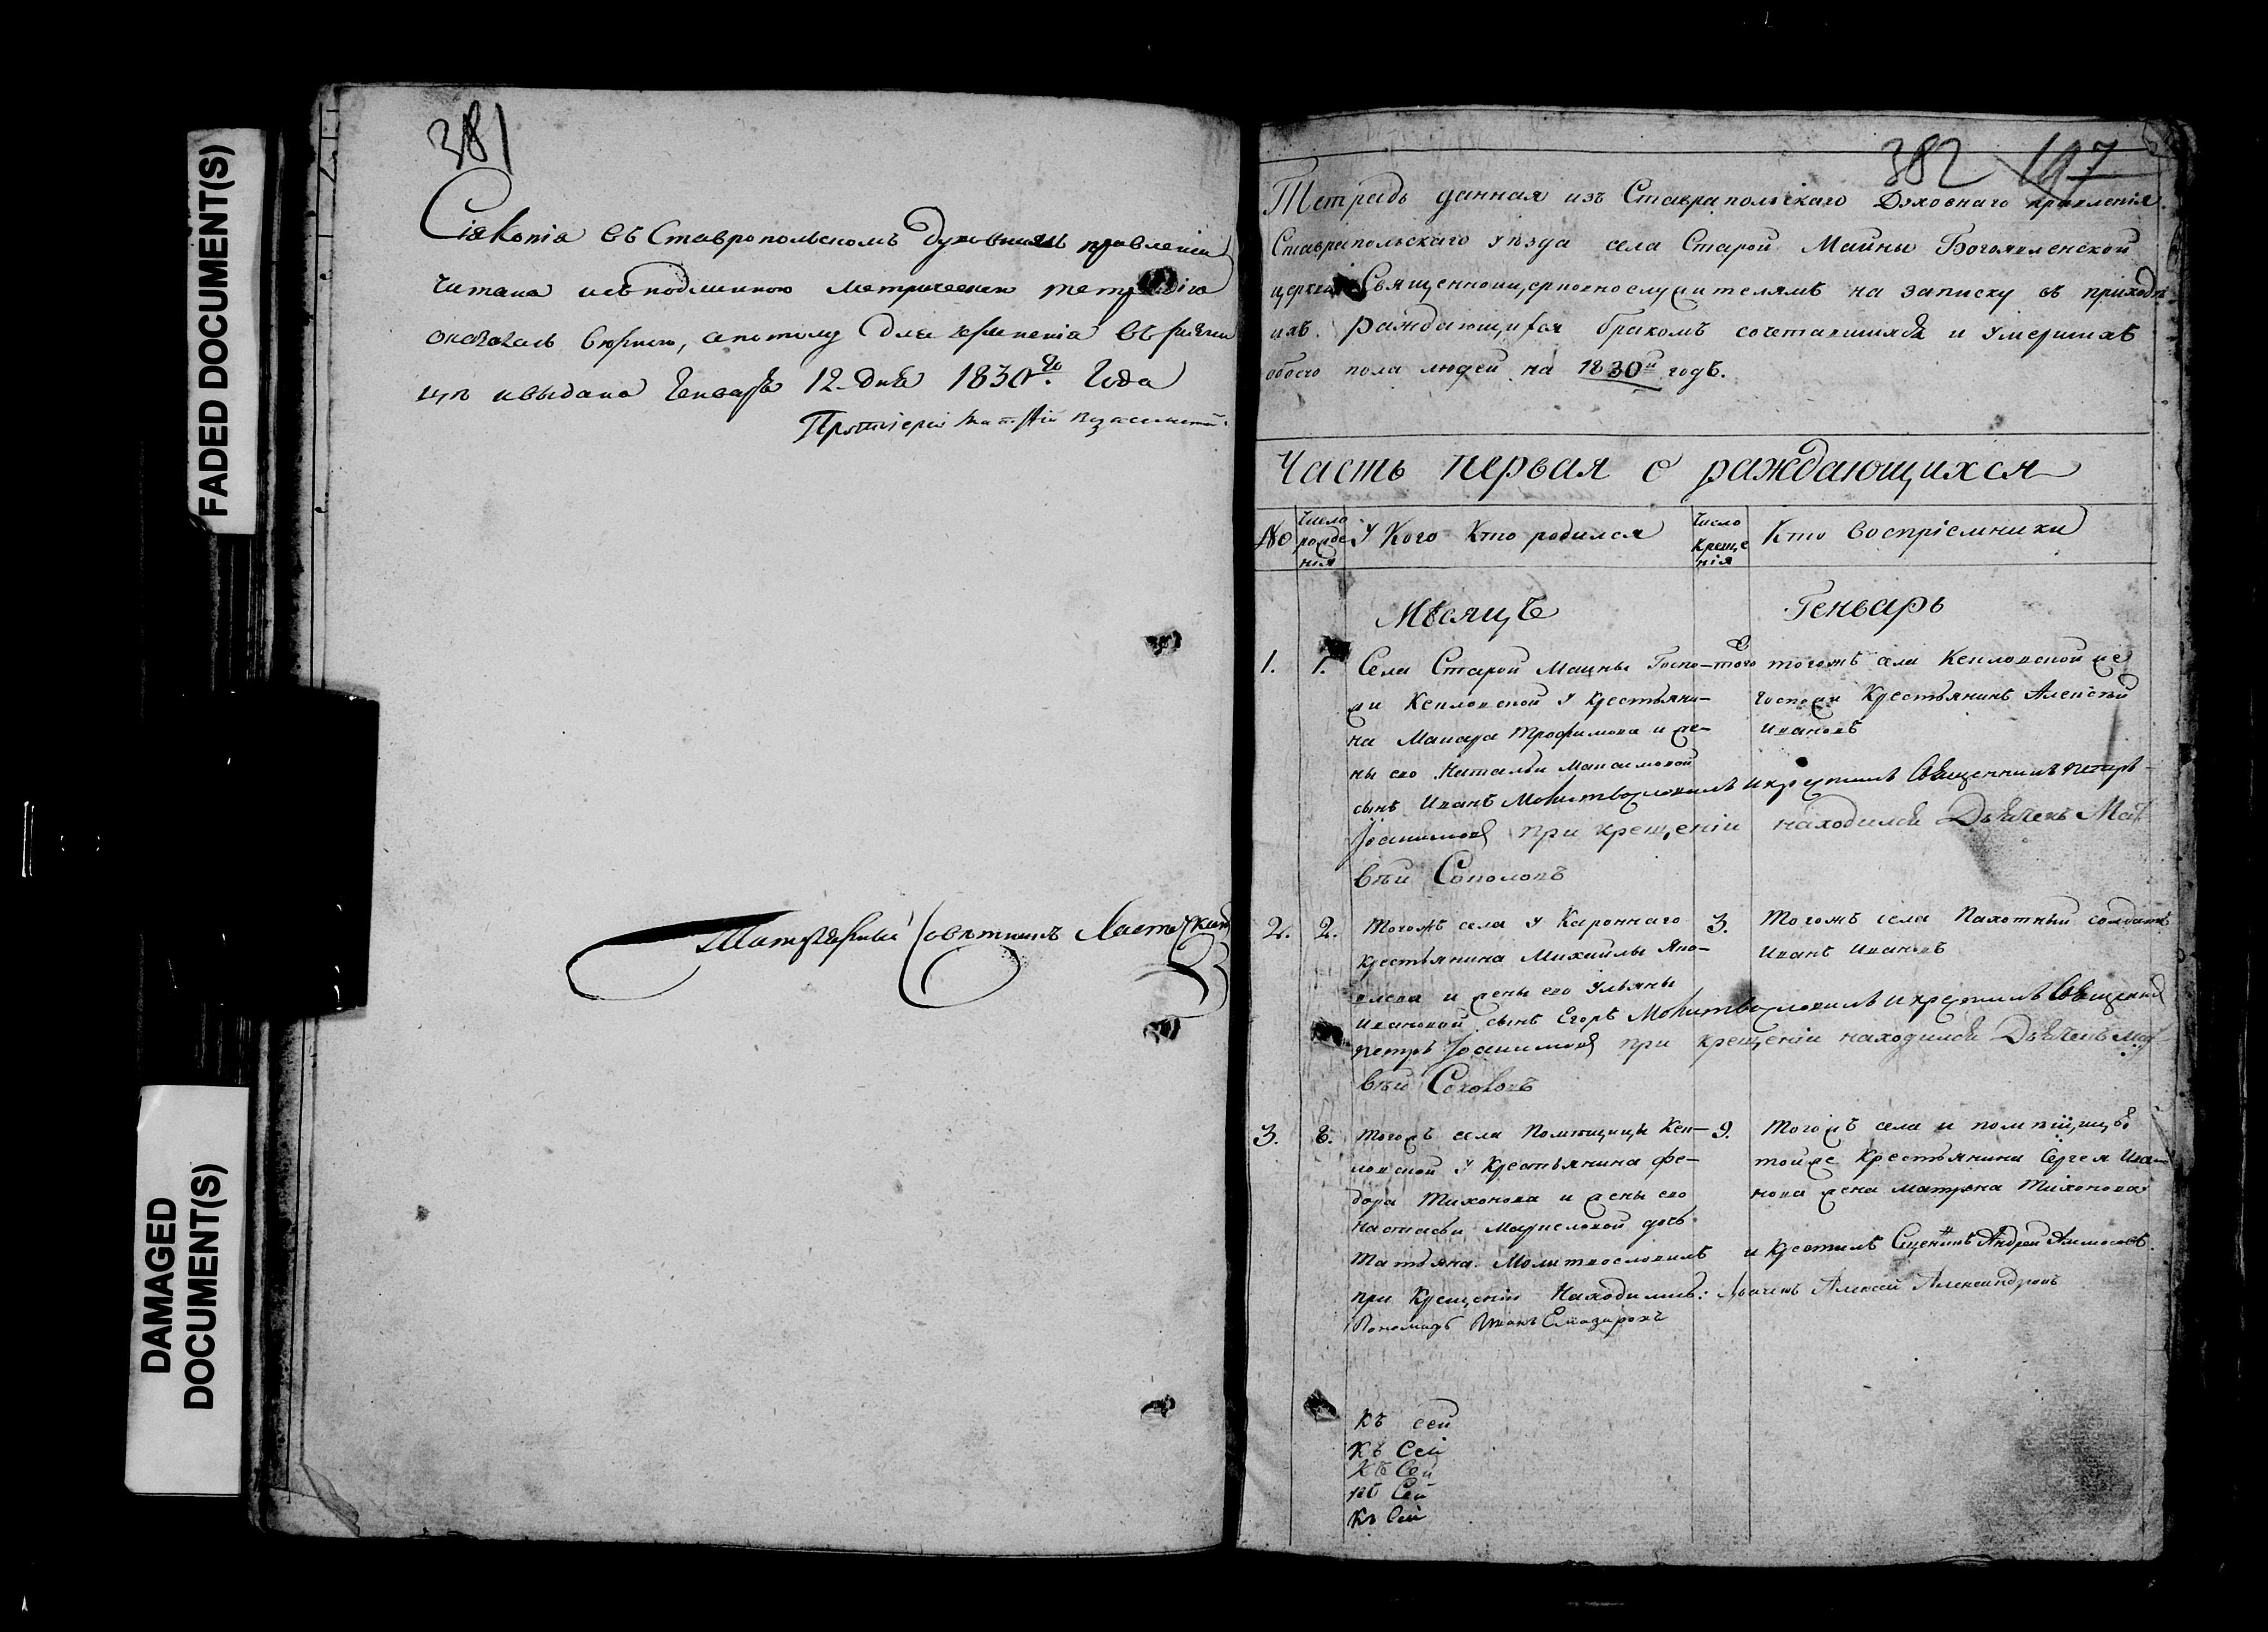 FADED DOCUMENT(S)
DAMAGED
DOCUMENT(S)
381
Сія Копія въ Ставропольскомъ духовномъ правленіи
читана и съ подлинною метрическою
оказалась верною, а потому для храненія въ
и выдана Генваря 12 дня 1830го Года
Протоіерей
Титулярный Советникъ
382 197
Тетрадь данная изъ Ставрапольскаго Духовнаго правленія
Ставрапольскаго уѣзда села Старой Майны Богоявленской
церкви Священноицерковнослужителямъ на записку въ приходѣ
ихъ раждающихся бракомъ сочетавшихся и умершихъ
обоего пола людей на 1830й годъ.
Часть первая о раждающихся
№
Число
рожде
нія
У Кого Кто родился
Число
Креще
нія
Кто воспріемники
Мѣсяцъ
Генварь
1. 1. Села Старой Майны Госпо- того тогожъ села
жи у крестьяни- госпожи Крестьянинъ Алексѣй
на Макара Трофимова и же- Ивановъ
ны его Натальи Максимовой
сынъ Иванъ Молитвословилъ и крестилъ Священникъ Петръ
при крещеніи находился Дьячекъ Мат
вѣй Соколовъ
2. 2. Тогожъ села у Кароннаго 3. Тогожъ села Пахотный солдатъ
крестьянина Михайлы Яко- Иванъ Ивановъ
влева и жены его Ульяны
Ивановой сынъ Егоръ Молитвословилъ и крестилъ Священникъ
Петръ при крещеніи находился Дьячекъ Мат
вѣй Соколовъ
3. 8. Тогожъ села Помѣщицы 9. Тогожъ села и помѣщицы
у Крестьянина Фе- тойже Крестьянина Сергея Ива-
дора Тихонова и жены его нова жена Матрена Тихонова
Настасьи дочь
Татьяна. Молитвословилъ и Крестилъ Андрей
при Крещеніи Находились: Дьячекъ Алексей Александровъ
Пономарь Иванъ
Къ сей
Къ Сей
Къ Сей
Къ Сей
Къ Сей